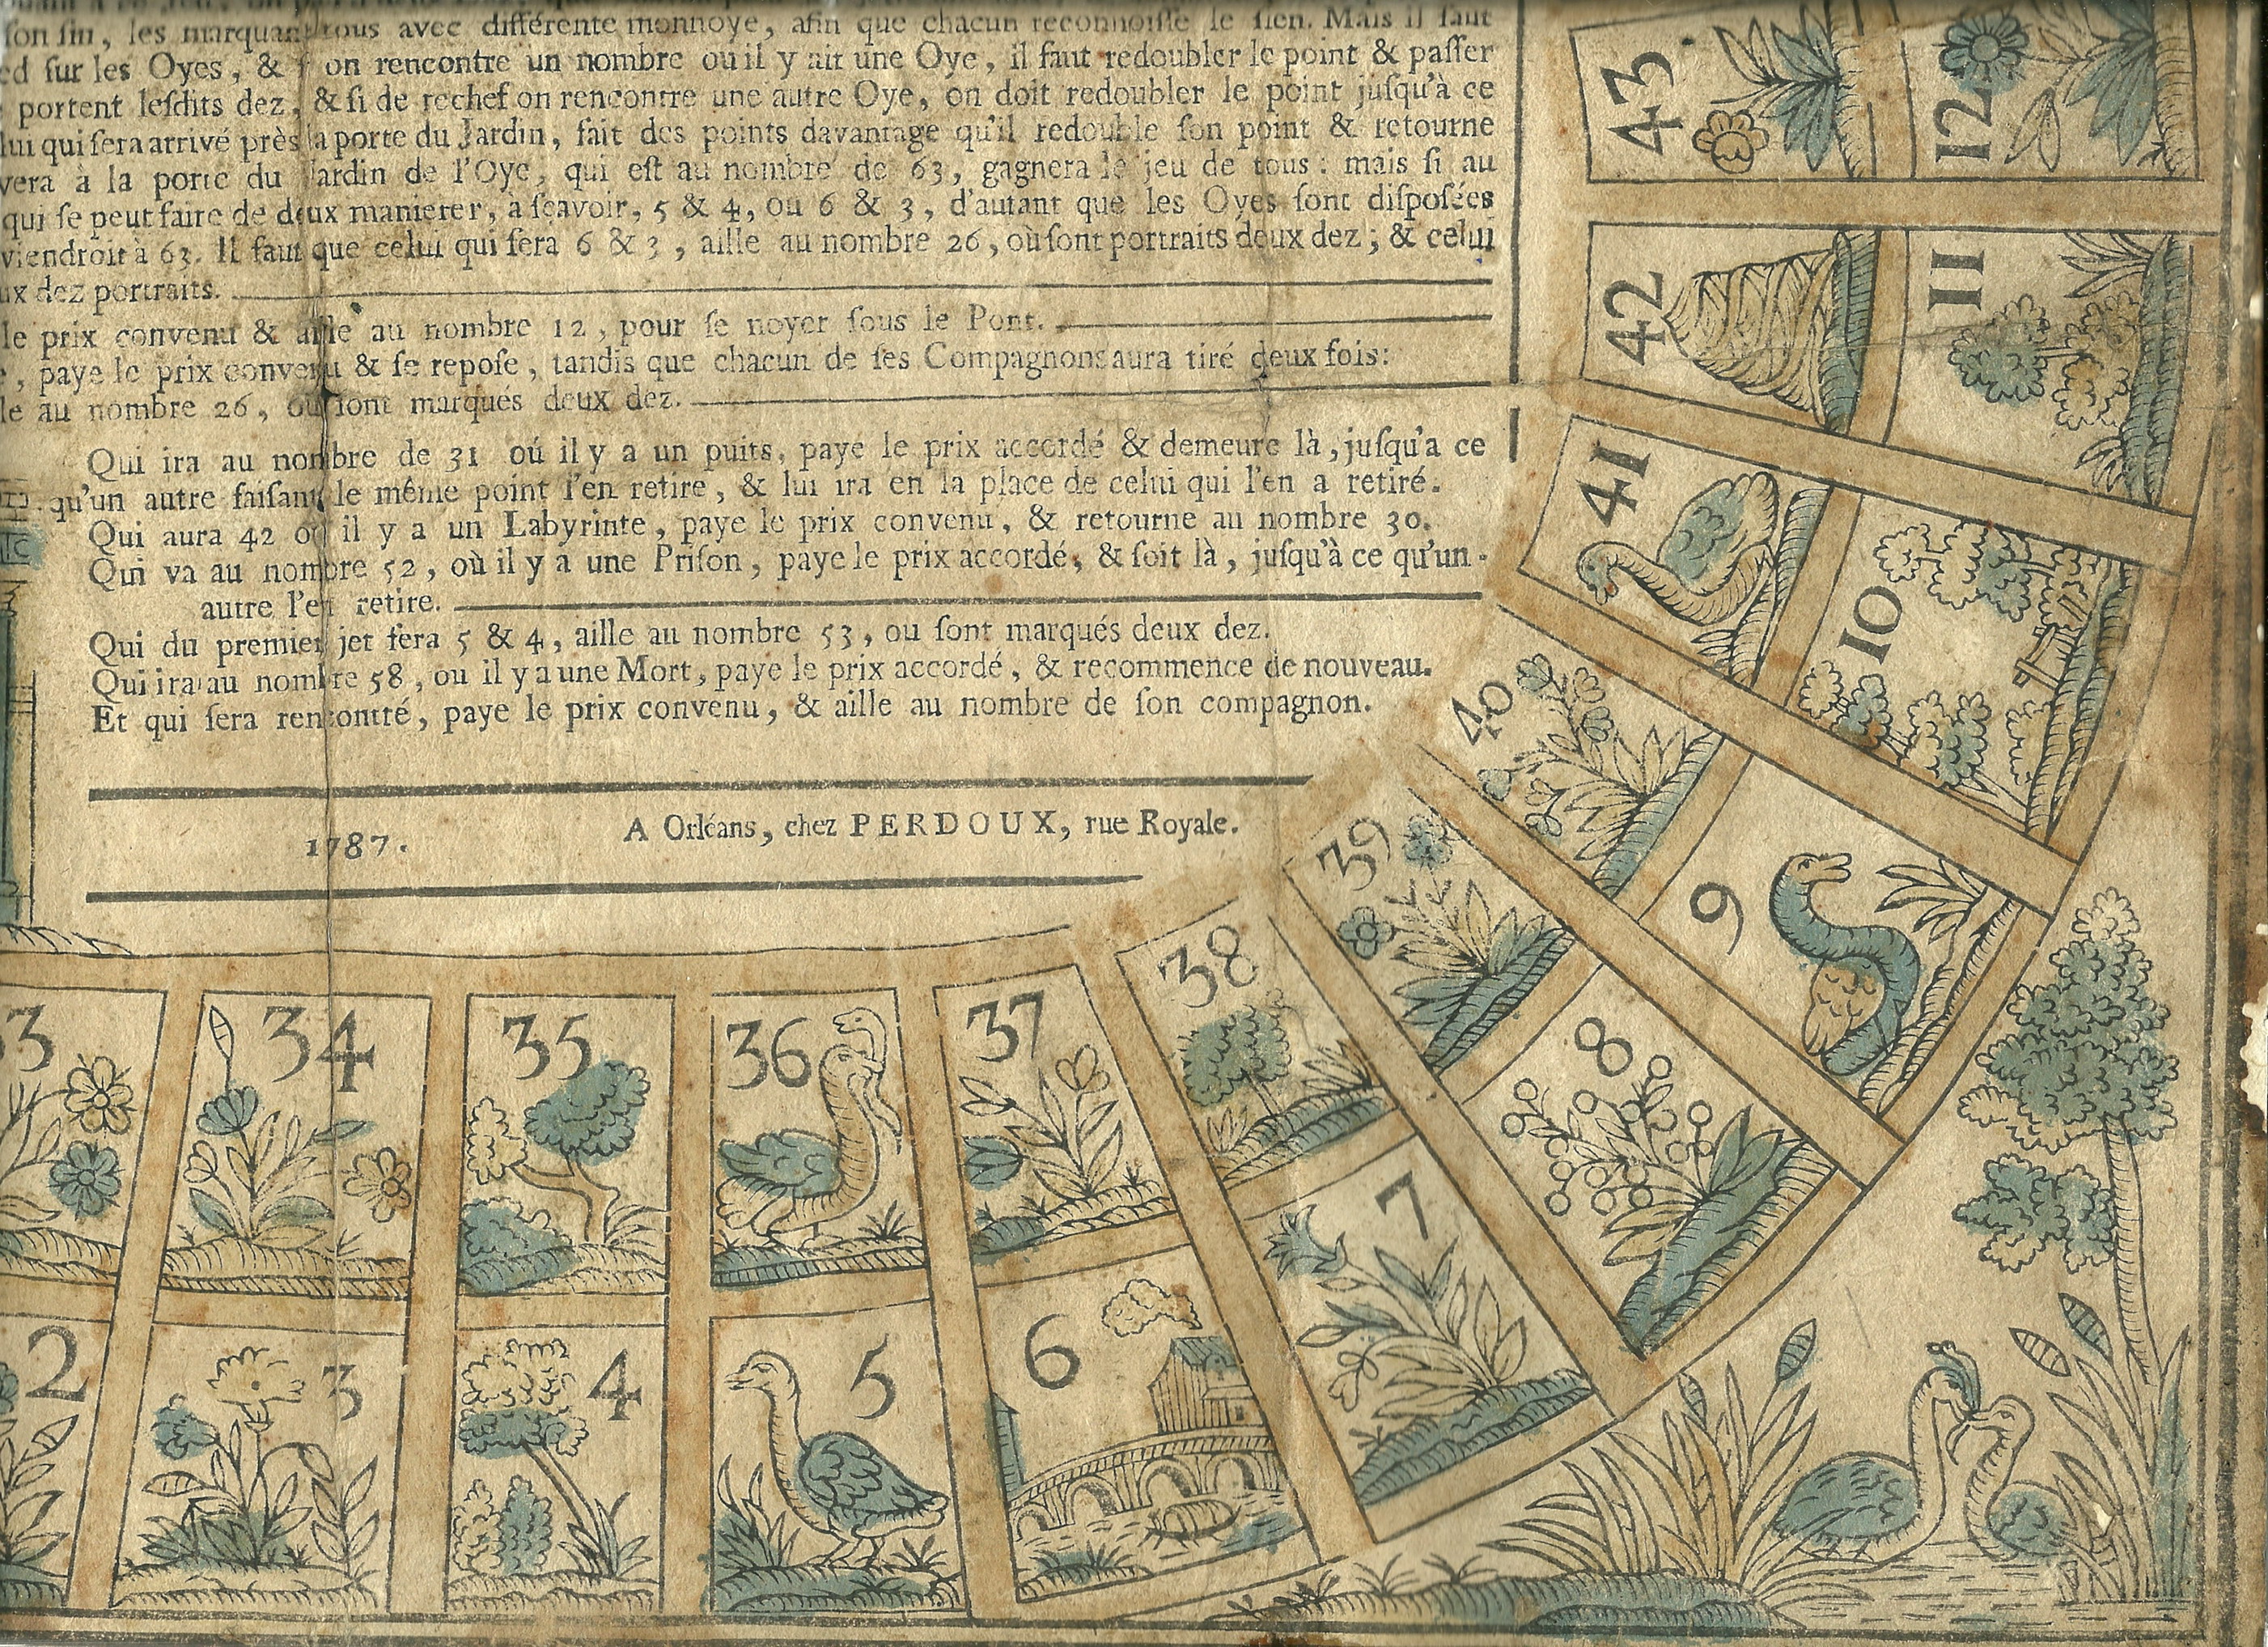 son sin, les marquant tous avec différente monnoye, afin que chacun reconnoisse le sien. Mais il faut
ed sur les Oyes, & on rencontre un nombre où il y ait une Oye, il faut redoubler le point & passer
portent lesdits dez, & si de rechef on rencontre une autre Oye, on doit redoubler le point jusqu'à ce
lui qui sera arrivé près la porte du Jardin, fait des points davantage qu'il redouble son point & retourne
vera à la porte du Jardin de l'Oye, qui est au nombre de 63, gagnera le jeu de tous : mais si au
qui se peut faire de deux manierer, à sçavoir, 5 & 4, ou 6 & 3, d'autant que les Oyes sont disposées
viendroit à 63. Il faut que celui qui fera 6 & 3, aille au nombre 26, où sont portraits deux dez ; & celui
ux dez portraits.
le prix convenu & aille au nombre 12, pour se noyer sous le Pont.
, paye le prix convenu & se repose, tandis que chacun de ses Compagnons aura tiré deux fois :
le au nombre 26, où sont marqués deux dez.
Qui ira au nombre de 31 oú il y a un puits, paye le prix accordé & demeure là, jusqu'a ce
qu'un autre faisant le même point l'en retire, & lui ira en la place de celui qui l'en a retiré.
Qui aura 42 où il y a un Labyrinte, paye le prix convenu, & retourne au nombre 30.
Qui va au nombre 52, où il y a une Prison, paye le prix accordé, & soit là, jusqu'à ce qu'un
autre l'en retire.
Qui du premier jet fera 5 & 4, aille au nombre 53, ou sont marqués deux dez.
Qui ira au nombre 58, ou il y a une Mort, paye le prix accordé, & recommence de nouveau.
Et qui sera rencontré, paye le prix convenu, & aille au nombre de son compagnon.
1787.
A Orléans, chez PERDOUX, rue Royale.
43
12
42
11
41
10
40
9
39
8
38
7
37
6
36
5
35
4
34
3
3
2